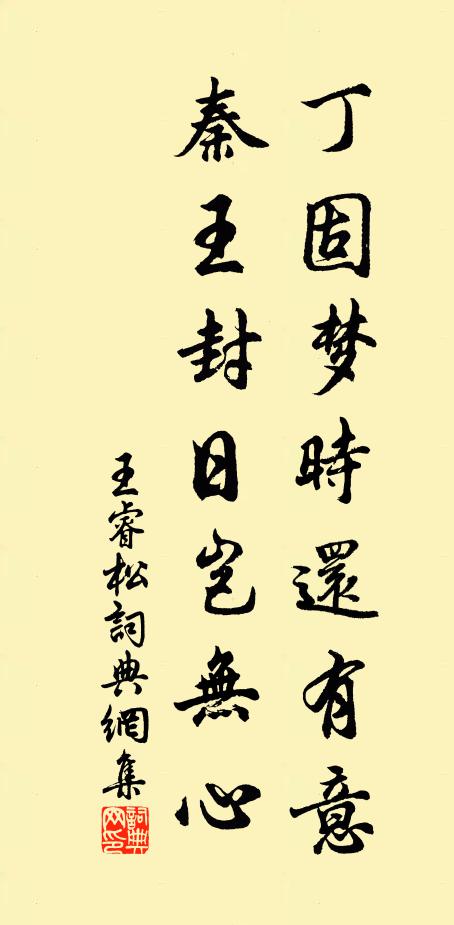 丁固梦時還有意
秦王封日岂無心
王睿松詞典網集
詞典网印